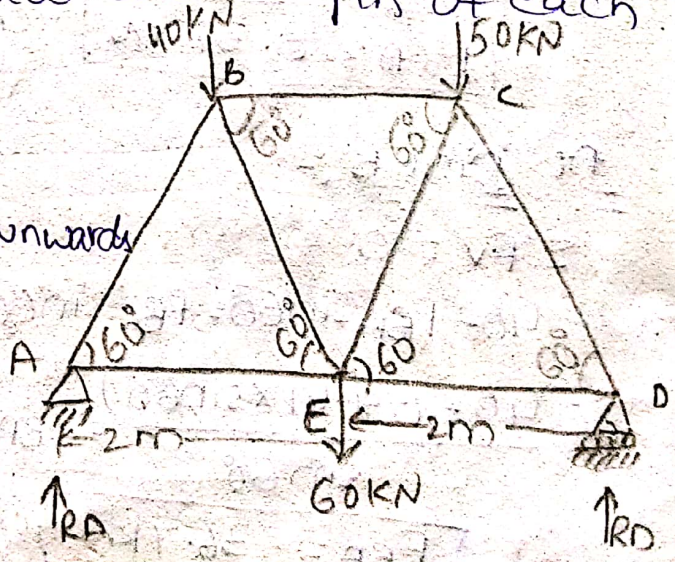 Pin of each
40KN
50KN
B
C
60°
60°
unwards
A
60°
60°
60
60°
D
E
2m
2m
60KN
RA
RD